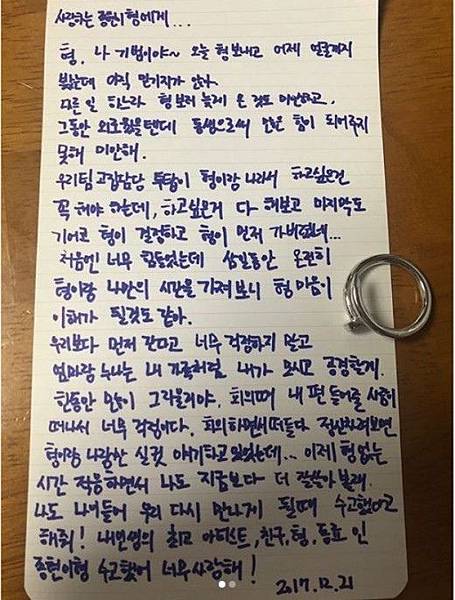 사랑하는 종현이형에게...
형. 나 기범이야~ 오늘 형 보내고 어제 얼굴까지
봤는데 아직 믿기지가 않아.
다른 일 하느라 형보러 늦게 온 것도 미안하고.
그동안 외로웠을텐데 동생으로써 많은 힘이 되어주지
못해 미안해.
우리팀 고집담당 투탑이 형이랑 나라서 하고싶은건
꼭 해야 하는데, 하고싶은거 다 해보고 마지막도
기어코 형이 결정하고 형이 먼저 가버렸네...
처음엔 너무 힘들었는데 삼일동안 온전히
형이랑 나만의 시간을 가져보니 형 마음이
이해가 될것도 같아.
우리보다 먼저 간다고 너무 걱정하지 말고
엄마랑 누나는 내 가족처럼 내가 모시고 공경할게.
한동안 많이 그리울거야. 회의때 내 편 들어줄 사람이
떠나서 너무 걱정이다. 회의하면서 떠들다 정신차려보면
형이랑 나랑만 실컷 얘기하고 있었는데... 이제 형 없는
시간 적응하면서 나도 지금보다 더 잘살아 볼래.
나도 나이들어 우리 다시 만나게 될때 수고했다고
해줘! 내인생의 최고 아티스트, 친구, 형, 동료 인
종현이형 수고했어 너무 사랑해!
2017.12.21